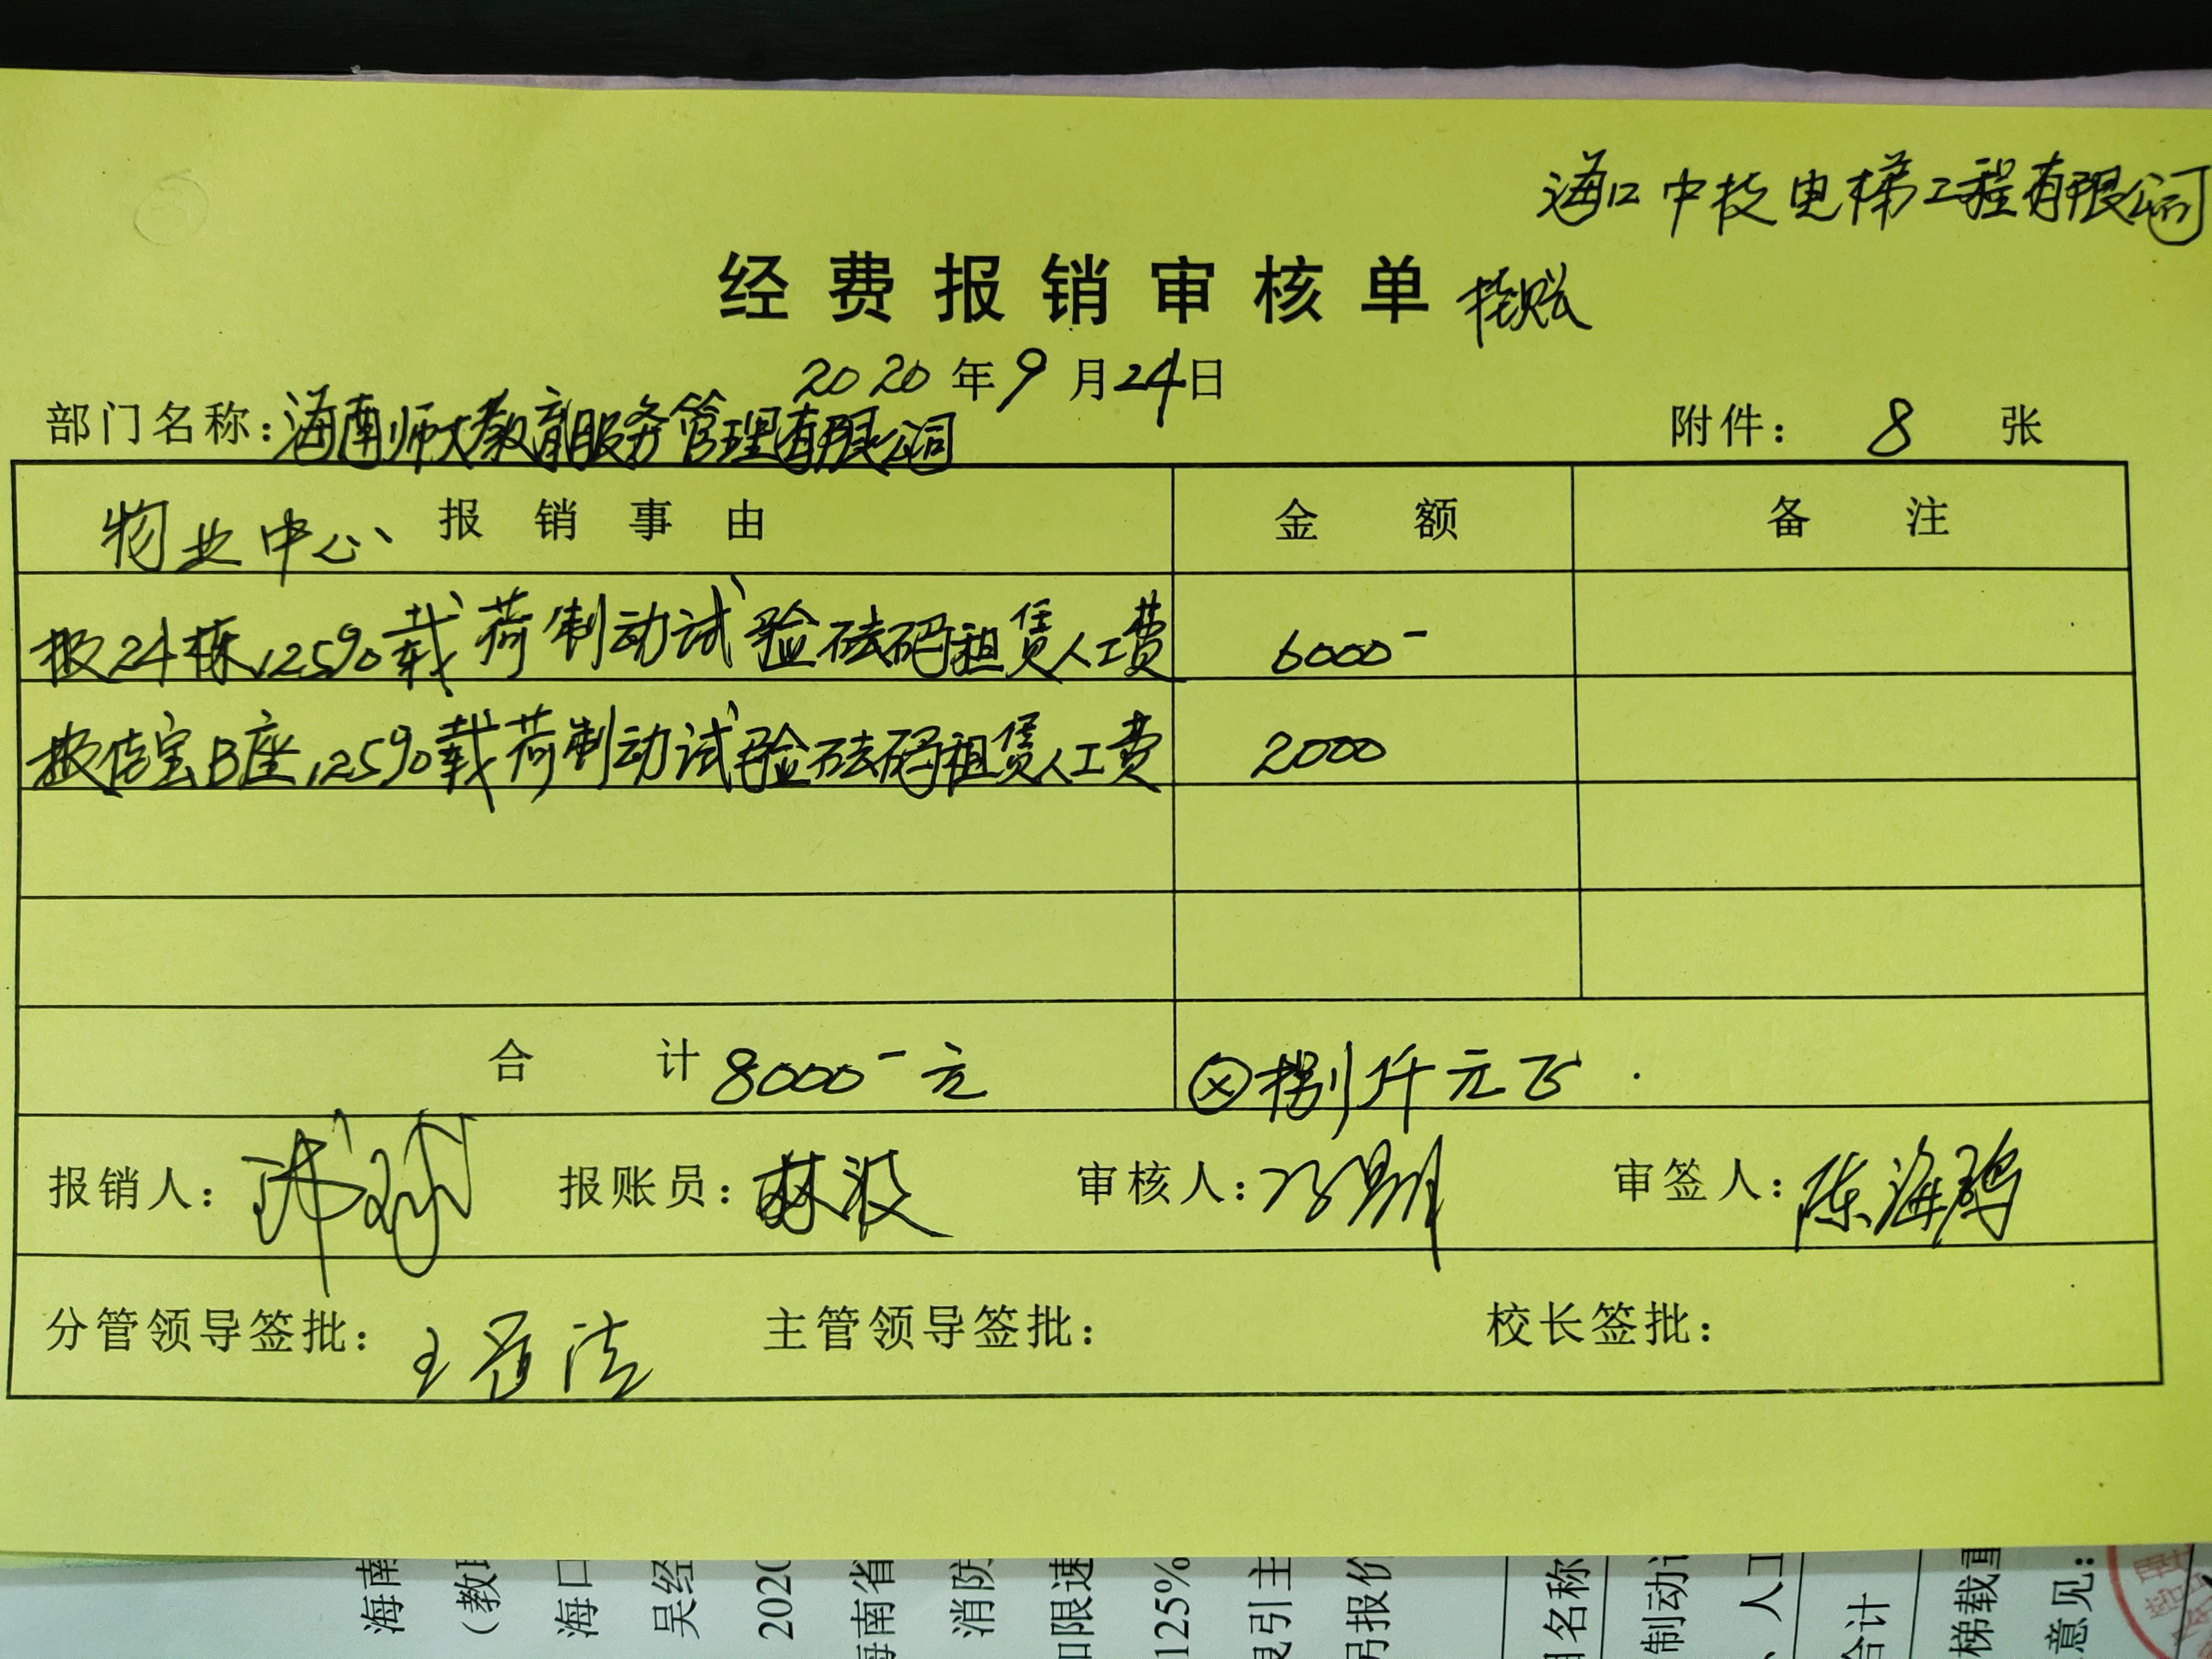 海口中技电梯工程有限公司
经费报销审核单 挂账
2020年9月24日
部门名称:海南师大教育服务管理有限公司 附件: 8 张
物业中心、报销事由 金额 备注
报24栋125%载荷制动试验砝码租赁人工费 6000-
报传宝B座125%载荷制动试验砝码租赁人工费 2000
合计 8000-元 ⓧ捌仟元正
报销人: 报账员:林波 审核人: 审签人:陈海鸿
分管领导签批: 主管领导签批: 校长签批:
海南
(教
海口
吴经
202
海南省
消防
限速
125%
曳引主
报价
名称
制动
、人工
合计
梯载重
意见: